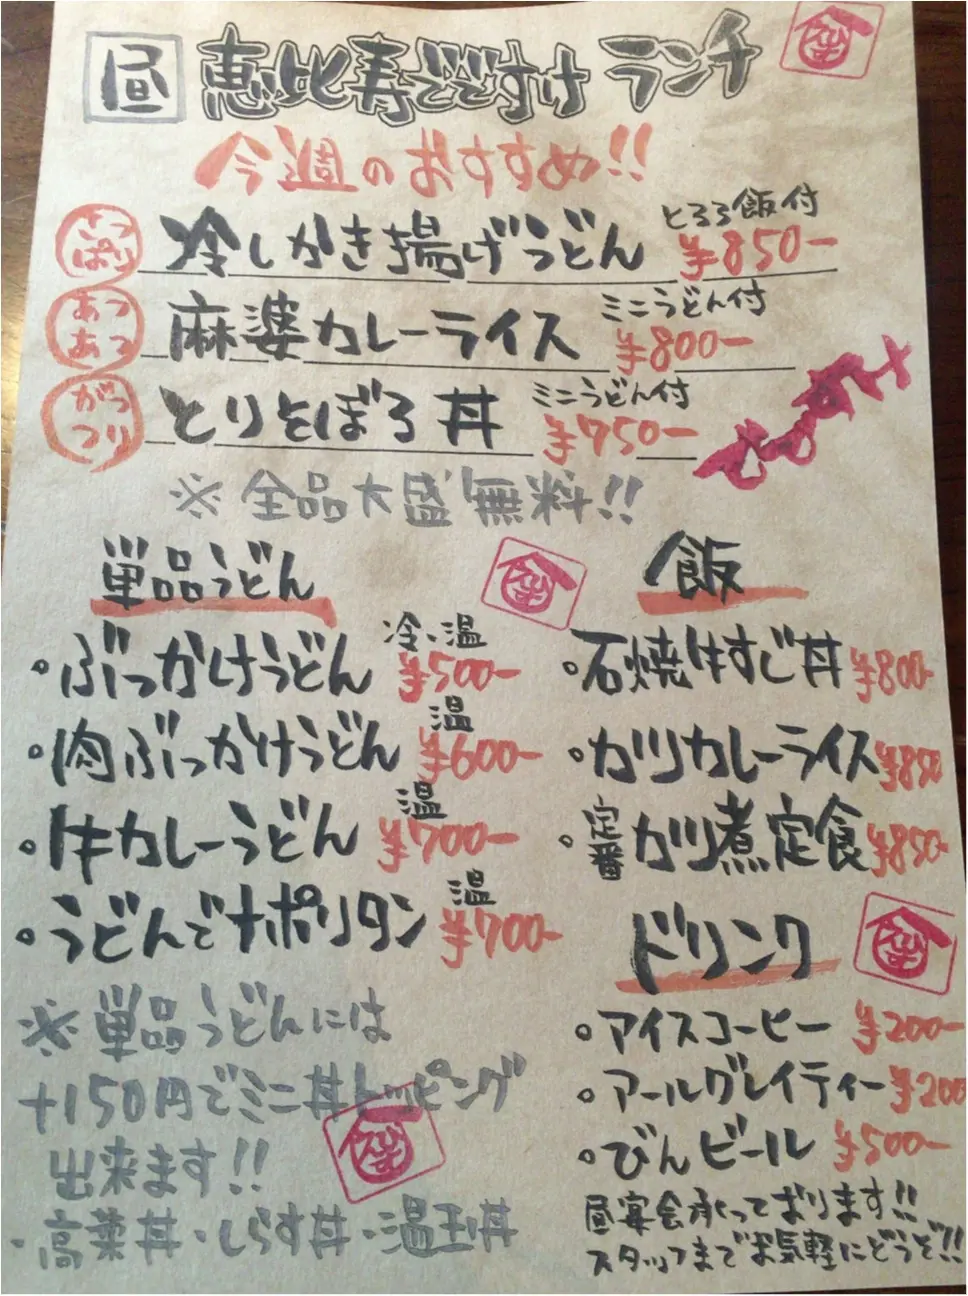 昼 恵比寿でですけ ランチ
今週のおすすめ!!
さっぱり 冷しかき揚げうどん とろろ飯付 ¥850-
あつあつ 麻婆カレーライス ミニうどん付 ¥800-
がっつり とりそぼろ丼 ミニうどん付 ¥750-
※全品大盛無料!!
単品うどん
・ぶっかけうどん 冷、温 ¥500-
・肉ぶっかけうどん 温 ¥600-
・牛カレーうどん 温 ¥700-
・うどんでナポリタン 温 ¥700-
※単品うどんには
+150円でミニ丼トッピング
出来ます!!
・高菜丼・しらす丼・温玉丼
飯
・石焼牛すじ丼 ¥800-
・カツカレーライス ¥850
・定番 カツ煮定食 ¥850-
ドリンク
・アイスコーヒー ¥200-
・アールグレイティー ¥200
・びんビール ¥500-
昼宴会承っております!!
スタッフまでお気軽にどうぞ!!